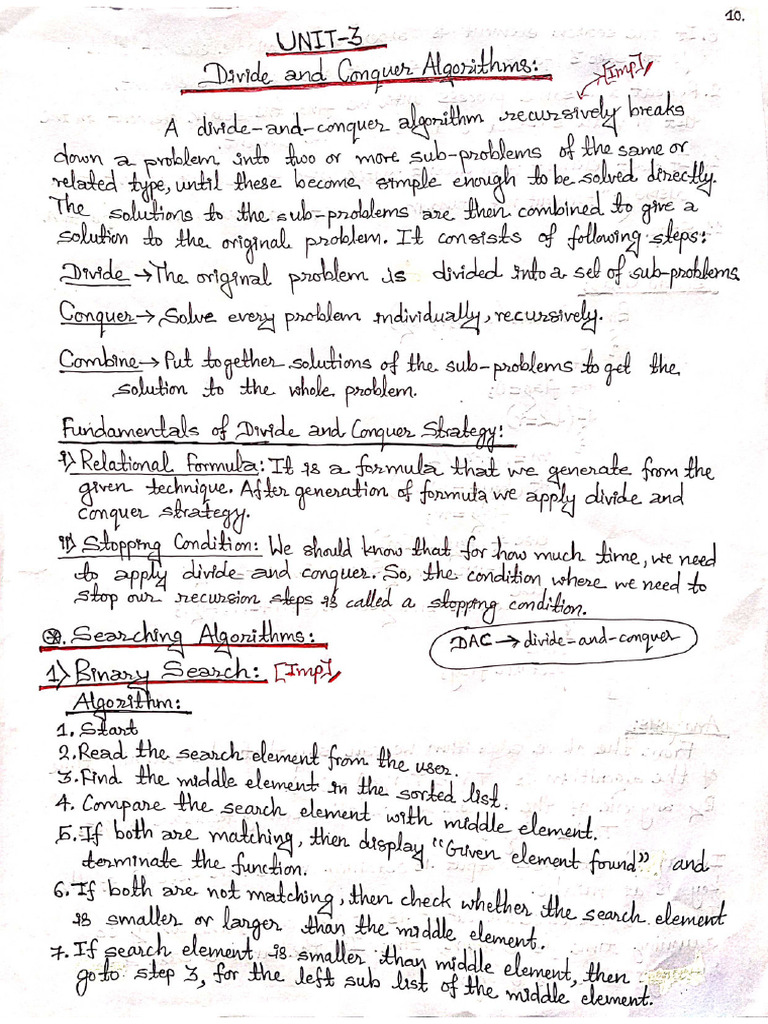 10.
UNIT-3
Divide and Conquer Algorithms:
[Imp]
A divide-and-conquer algorithm recursively breaks
down a problem into two or more sub-problems of the same or
related type, until these become simple enough to be solved directly.
The solutions to the sub-problems are then combined to give a
solution to the original problem. It consists of following steps:
Divide → The original problem is divided into a set of sub-problems
Conquer → Solve every problem individually, recursively.
Combine → Put together solutions of the sub-problems to get the
solution to the whole problem.
Fundamentals of Divide and Conquer Strategy:
i) Relational Formula: It is a formula that we generate from the
given technique. After generation of formula we apply divide and
conquer strategy.
ii) Stopping Condition: We should know that for how much time, we need
to apply divide and conquer. So, the condition where we need to
stop our recursion steps is called a stopping condition.
⊛. Searching Algorithms:
DAC → divide-and-conquer
1) Binary Search: [Imp]
Algorithm:
1. Start
2. Read the search element from the user.
3. Find the middle element in the sorted list.
4. Compare the search element with middle element.
5. If both are matching, then display "Given element found" and
terminate the function.
6. If both are not matching, then check whether the search element
is smaller or larger than the middle element.
7. If search element is smaller than middle element, then
go to step 3, for the left sub list of the middle element.